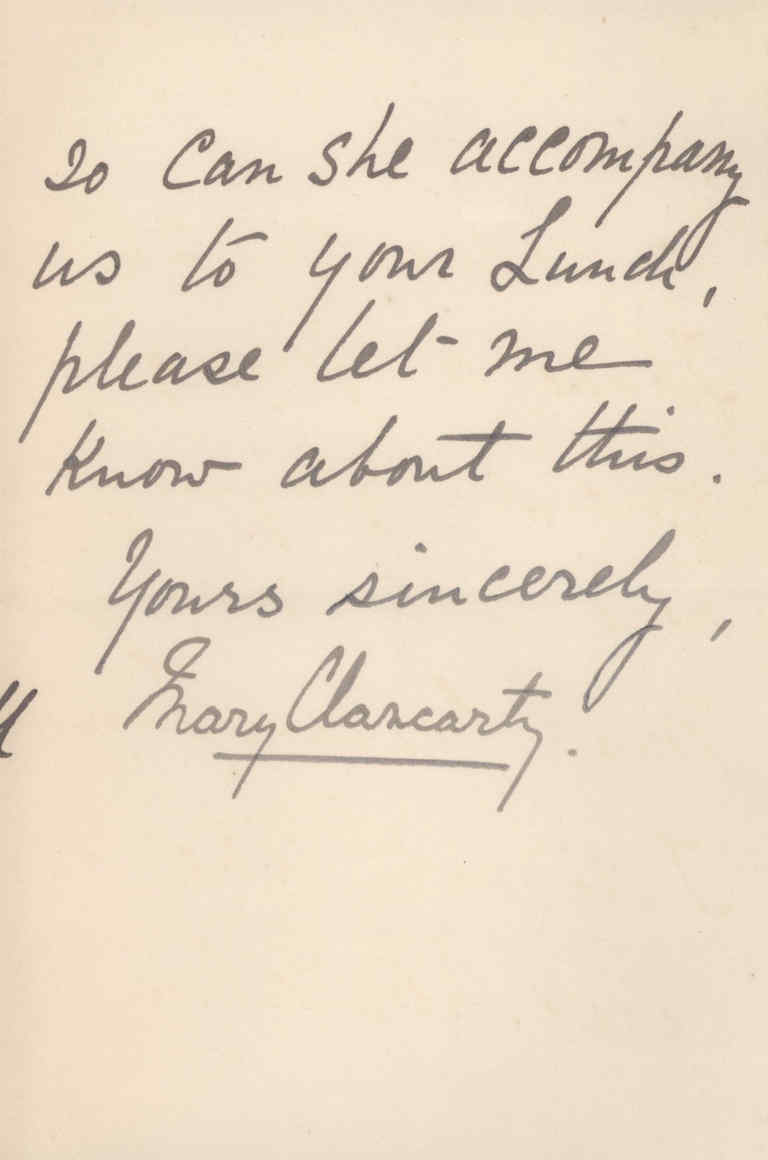 so can she accompany
us to your Lunch,
please let me
know about this.
Yours sincerely,
Mary Clancarty.